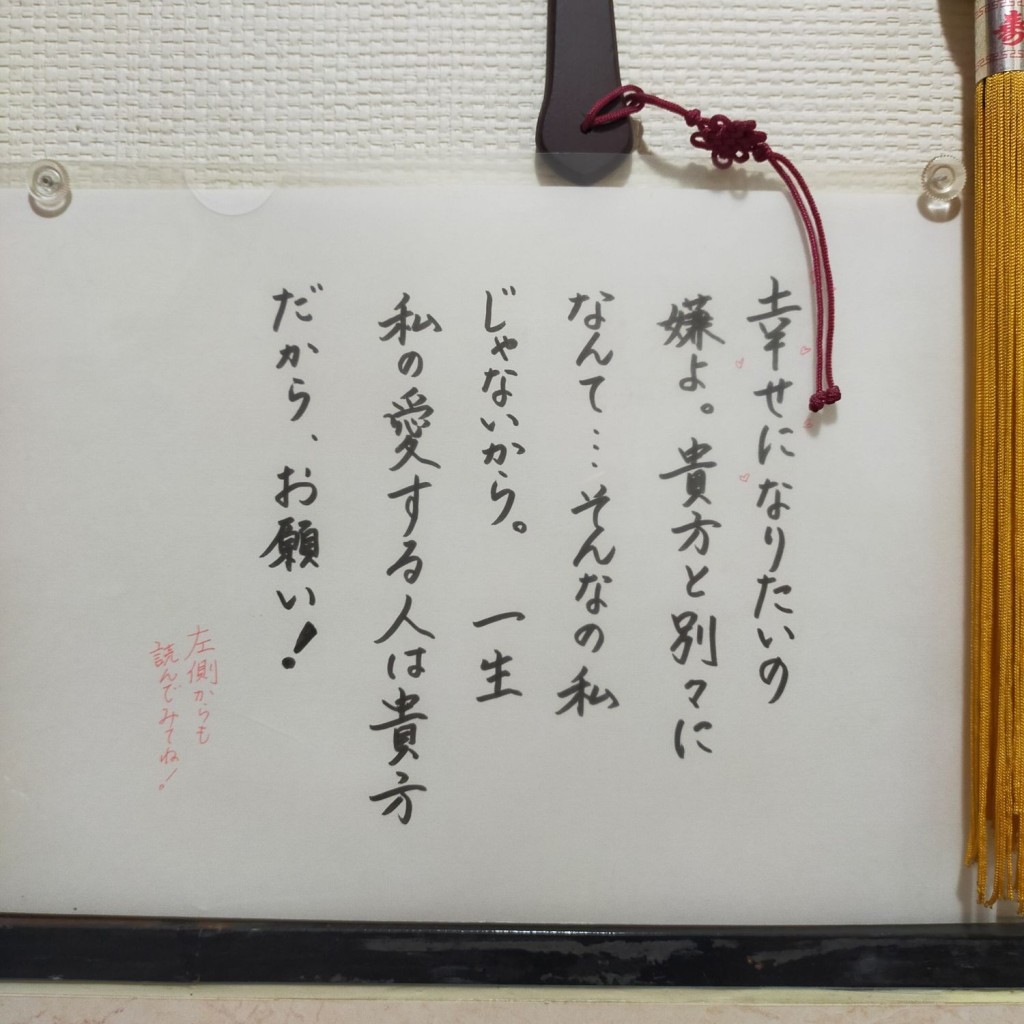 幸せになりたいの
嫌よ。貴方と別々に
なんて…そんなの私
じゃないから。 一生
私の愛する人は貴方
だから、お願い!
左側からも
読んでみてね!
寿